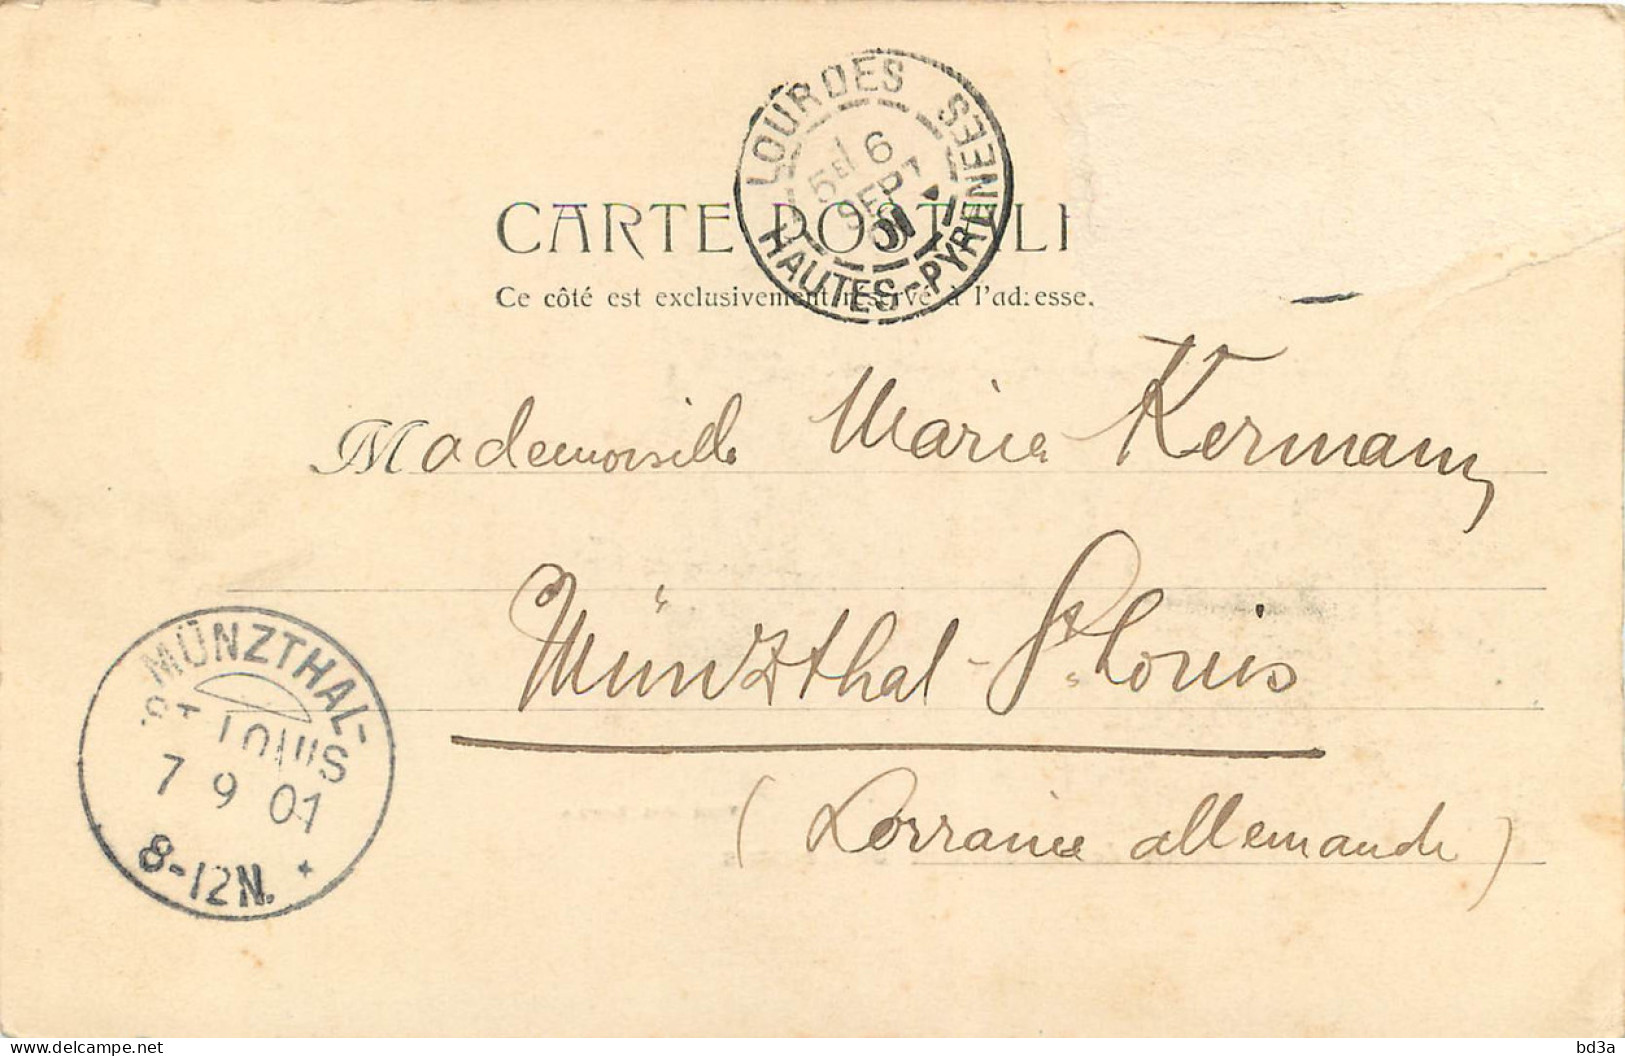 LOURDES
HAUTES-PYRENEES
6
SEPT
01
CARTE POSTALE
Ce côté est exclusivement réservé à l'adresse.
Mademoiselle Marie Kermann
Münzthal-St Louis
(Lorraine allemande)
MÜNZTHAL-
ST LOUIS
7 9 01
8-12N.
bd3a